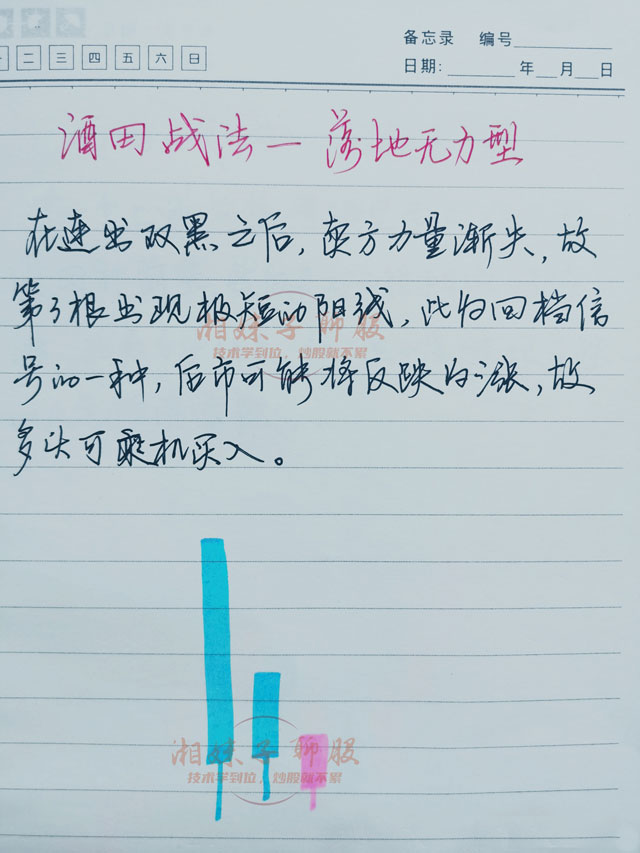 备忘录 编号
二 三 四 五 六 日
日期: 年 月 日
酒田战法—落地无力型
在连出双黑之后，卖方力量渐失，故
第3根出现极短的阳线，此为回档信
湘妹子聊股
技术学到位，炒股就不累
号的一种，后市可能将反映为涨，故
多头可乘机买入。
湘妹子聊股
技术学到位，炒股就不累